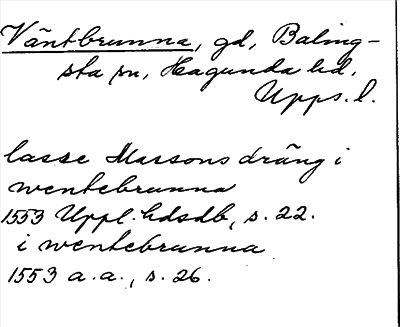 Väntbrunna, gd, Baling-
sta sn, Hagunda hd,
Upps. l.
lasse Massons dräng i
wentebrunna
1553 Uppl. hdsdb, s. 22.
i wentebrunna
1553 a. a., s. 26.